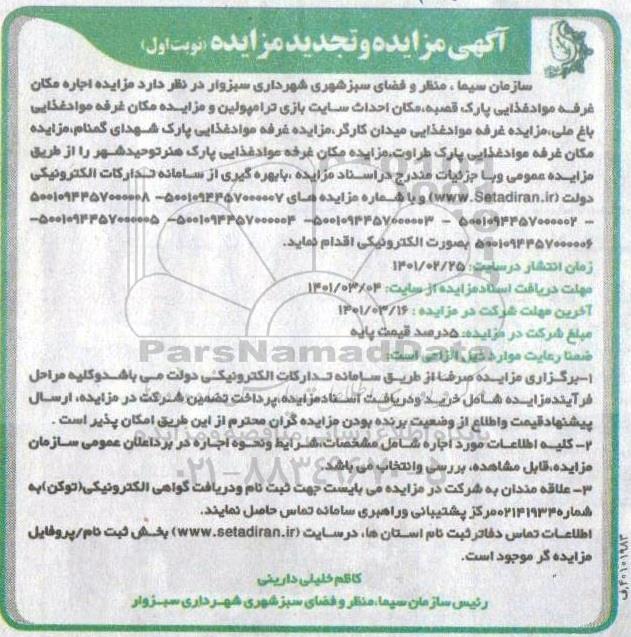 آگهی مزایده و تجدید مزایده (نوبت اول)
سازمان سیما ، منظر و فضای سبز شهری شهرداری سبزوار در نظر دارد مزایده اجاره مکان
غرفه موادغذایی پارک قصبه،مکان احداث سایت بازی ترامپولین و مزایده مکان غرفه موادغذایی
باغ ملی،مزایده غرفه موادغذایی میدان کارگر،مزایده غرفه موادغذایی پارک شهدای گمنام،مزایده
مکان غرفه موادغذایی پارک طراوت،مزایده مکان غرفه موادغذایی پارک هنرتوحیدشهر را از طریق
مزایده عمومی وبا جزئیات مندرج دراسناد مزایده ،بابهره گیری از سامانه تدارکات الکترونیکی
دولت (www.Setadiran.ir) و با شماره مزایده های ۵۰۰۱۰۹۴۴۵۷۰۰۰۰۰۷- ۵۰۰۱۰۹۴۴۵۷۰۰۰۰۰۸
– ۵۰۰۱۰۹۴۴۵۷۰۰۰۰۰۲ – ۵۰۰۱۰۹۴۴۵۷۰۰۰۰۰۳- ۵۰۰۱۰۹۴۴۵۷۰۰۰۰۰۴ -۵۰۰۱۰۹۴۴۵۷۰۰۰۰۰۵–
۵۰۰۱۰۹۴۴۵۷۰۰۰۰۰۶ بصورت الکترونیکی اقدام نماید.
زمان انتشار درسایت: ۱۴۰۱/۰۲/۲۵
مهلت دریافت اسنادمزایده از سایت: ۱۴۰۱/۰۳/۰۴
آخرین مهلت شرکت در مزایده : ۱۴۰۱/۰۳/۱۶
مبلغ شرکت در مزایده: ۵درصد قیمت پایه
ضمنا رعایت موارد ذیل الزامی است:
۱-برگزاری مزایده صرفا از طریق سامانه تدارکات الکترونیکی دولت می باشدوکلیه مراحل
فرآیندمزایده شامل خرید ودریافت اسنادمزایده،پرداخت تضمین شرکت در مزایده، ارسال
پیشنهادقیمت واطلاع از وضعیت برنده بودن مزایده گران محترم از این طریق امکان پذیر است .
۲- کلیه اطلاعات مورد اجاره شامل مشخصات،شرایط ونحوه اجاره در برداعلان عمومی سازمان
مزایده،قابل مشاهده، بررسی وانتخاب می باشد.
۳- علاقه مندان به شرکت در مزایده می بایست جهت ثبت نام ودریافت گواهی الکترونیکی(توکن)به
شماره۰۲۱۴۱۹۳۴مرکز پشتیبانی وراهبری سامانه تماس حاصل نمایند.
اطلاعات تماس دفاتر ثبت نام استان ها، درسایت (www.setadiran.ir) بخش ثبت نام/پروفایل
مزایده گر موجود است.
کاظم خلیلی دارینی
رئیس سازمان سیما،منظر و فضای سبز شهری شهرداری سبزوار
ParsNamadData
۰۲۱-۸۸۳۴۹۶۷۰-۵
۴۰۱۰۱۹۸۳/ف